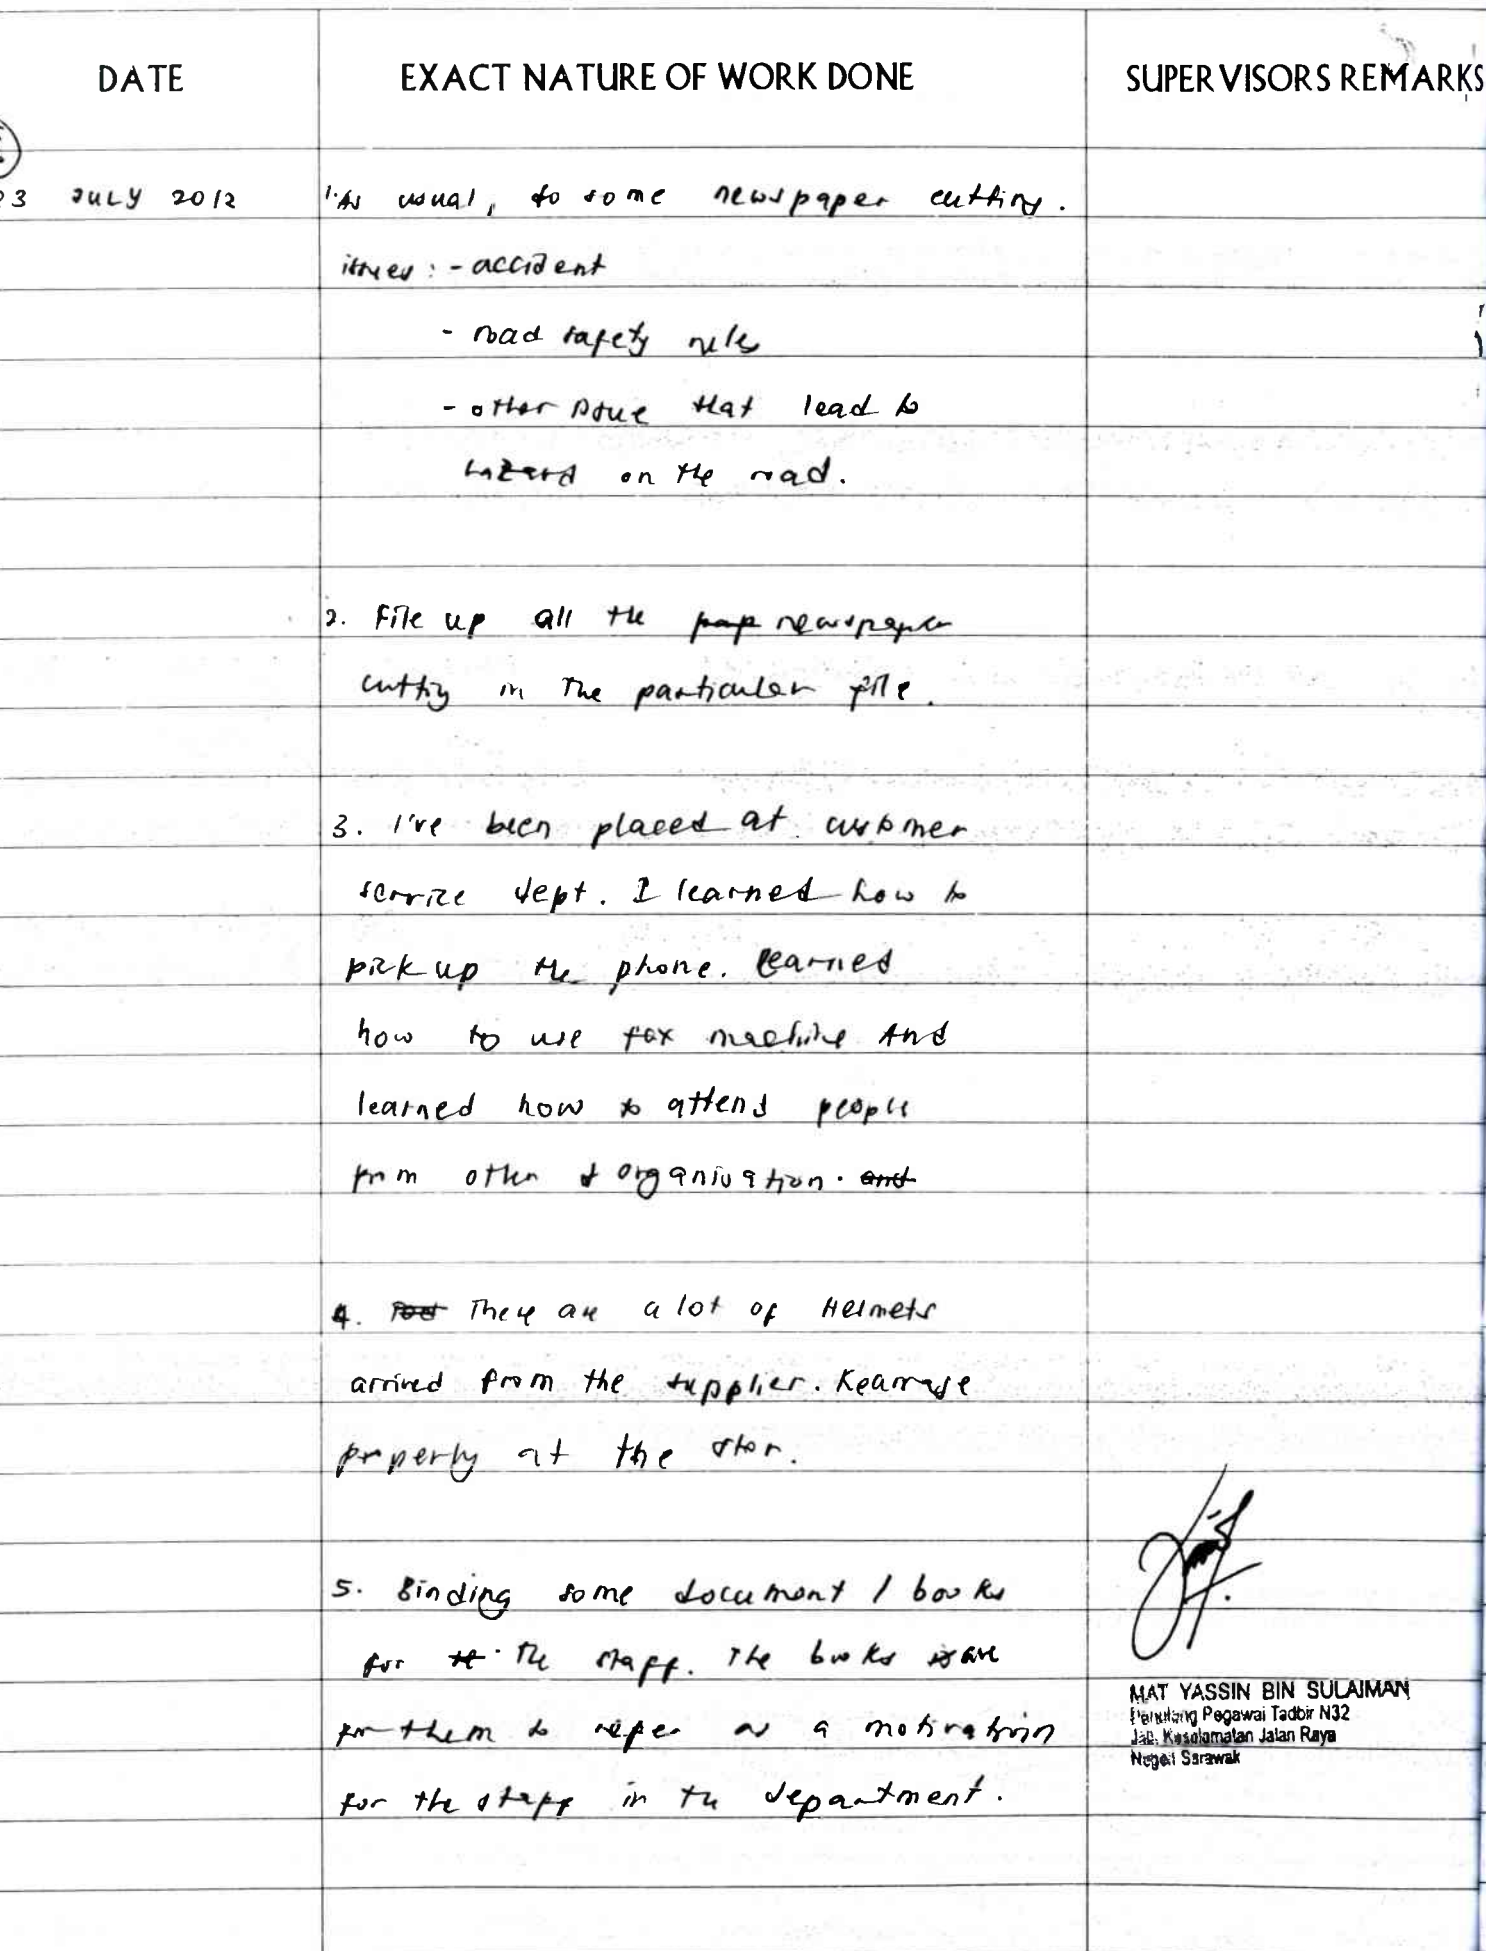 DATE EXACT NATURE OF WORK DONE SUPERVISORS REMARKS
3 JULY 2012 1. As usual, do some newspaper cutting.
issues : - accident
- road safety rules
- other issue that lead to
hazard on the road.
2. File up all the pap newspaper
cutting in the particular file.
3. I've been placed at customer
service dept. I learned how to
pick up the phone. Learned
how to use fax machine And
learned how to attend people
from other organisation. and
4. There are a lot of Helmets
arrived from the supplier. Rearrage
properly at the stor.
5. Binding some document / books
for the staff. The books is are
for them to refer as a motivation
for the staff in the department.
MAT YASSIN BIN SULAIMAN
Penolong Pegawai Tadbir N32
Jab. Keselamatan Jalan Raya
Negeri Sarawak